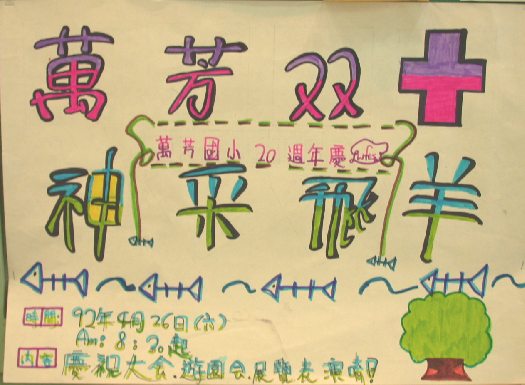 萬芳双十
萬芳國小20週年慶
神采飛羊
時間: 92年4月26日(六)
Am: 8:30起
内容: 慶祝大会.遊園会.展覽表演唷!